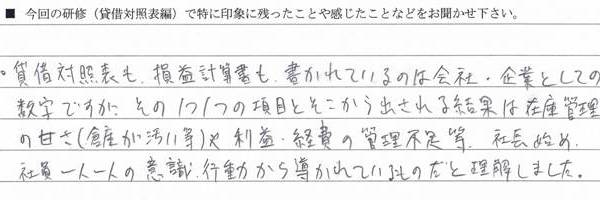 ■ 今回の研修（貸借対照表編）で特に印象に残ったことや感じたことなどをお聞かせ下さい。
・貸借対照表も、損益計算書も、書かれているのは会社・企業としての
数字ですが、その1つ1つの項目とそこから出される結果は在庫管理
の甘さ(倉庫が汚い等)や利益・経費の管理不足等、社長始め、
社員一人一人の意識、行動から導かれているものだと理解しました。